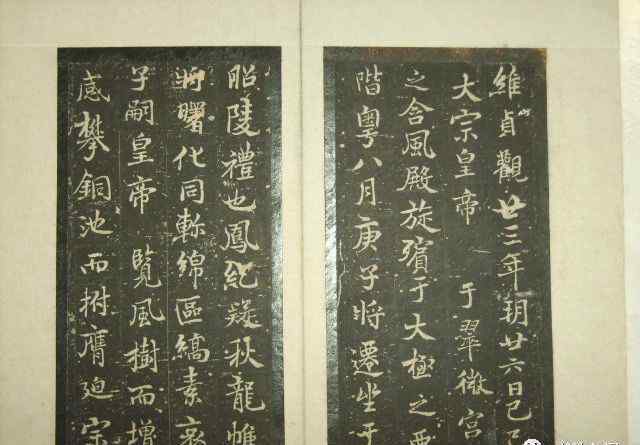 維貞觀廿三年朔廿六日己
大宗皇帝 于翠微宮
之含風殿旋殯于大極之西
階粵八月庚子將遷坐于
昭陵禮也鳳紀疑秋龍帷
將曙化同軫綿區縞素
子嗣皇帝 覽風樹而增
感攀銅池而拊膺迫宗